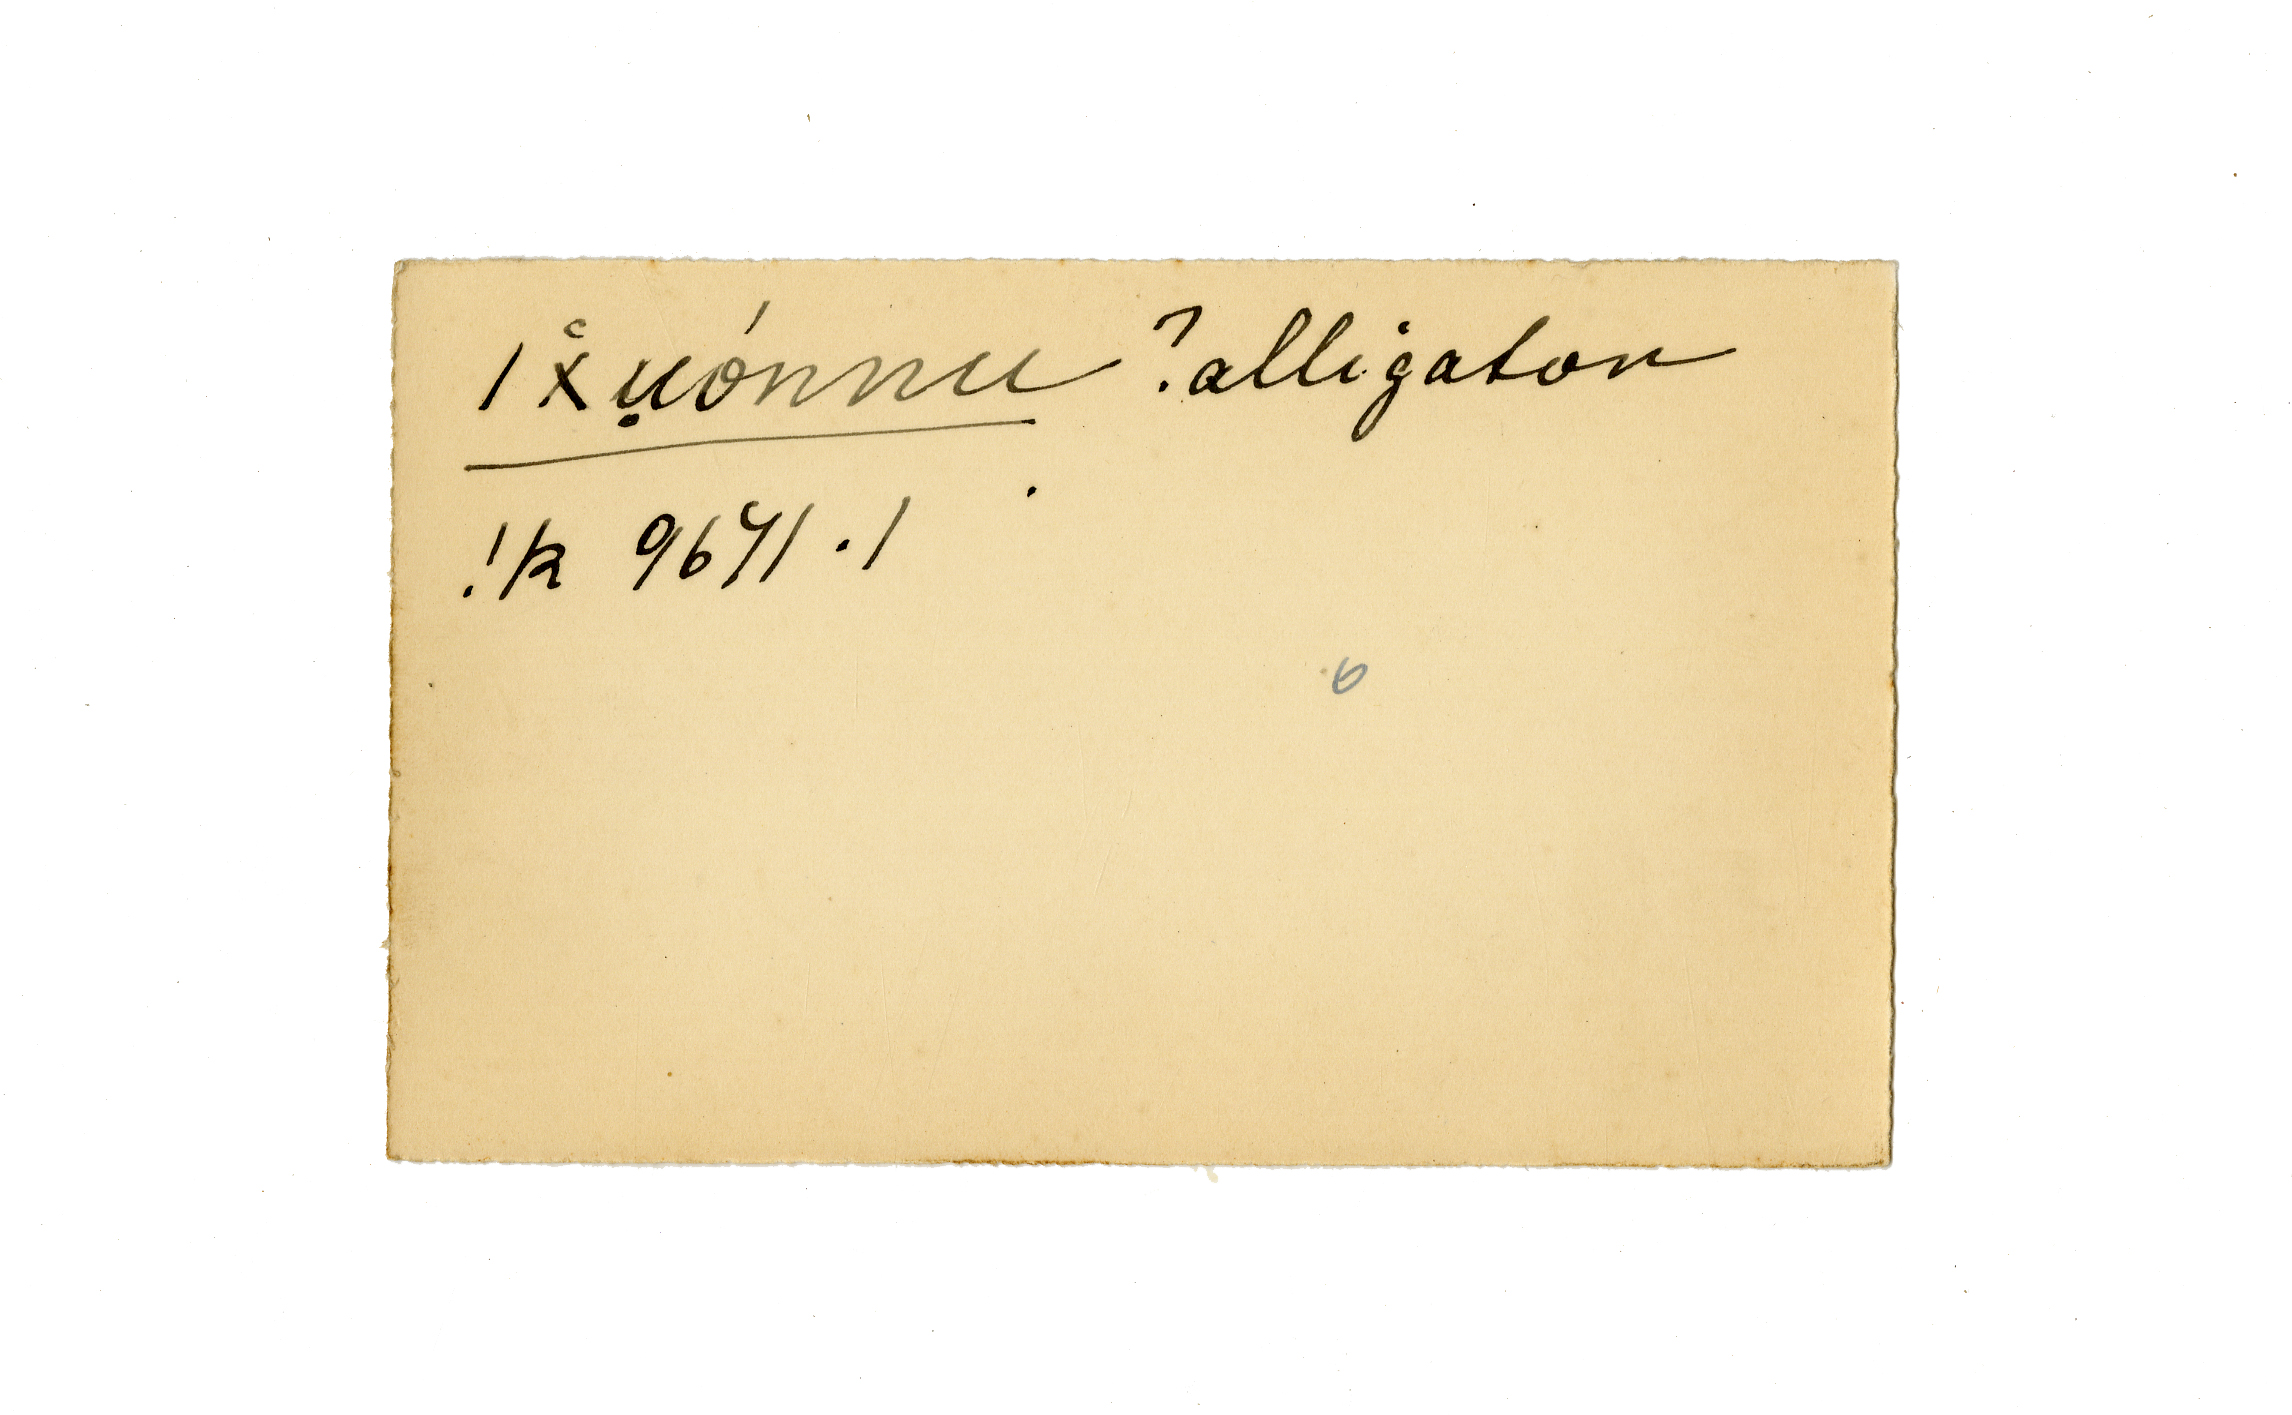 /x̆ụónnu ?alligator
!k 9641.1
6